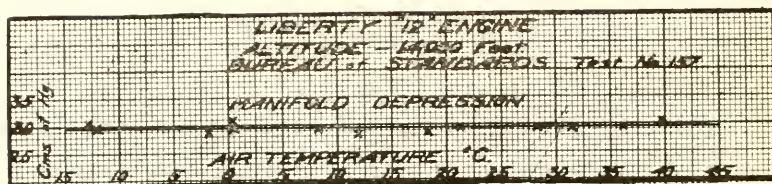 LIBERTY "12" ENGINE
ALTITUDE - 14,000 Feet
BUREAU of STANDARDS Test No. 157
3.5
MANIFOLD DEPRESSION
3.0
2.5
Cms of Hg
AIR TEMPERATURE °C.
15 10 5 0 5 10 15 20 25 30 35 40 45